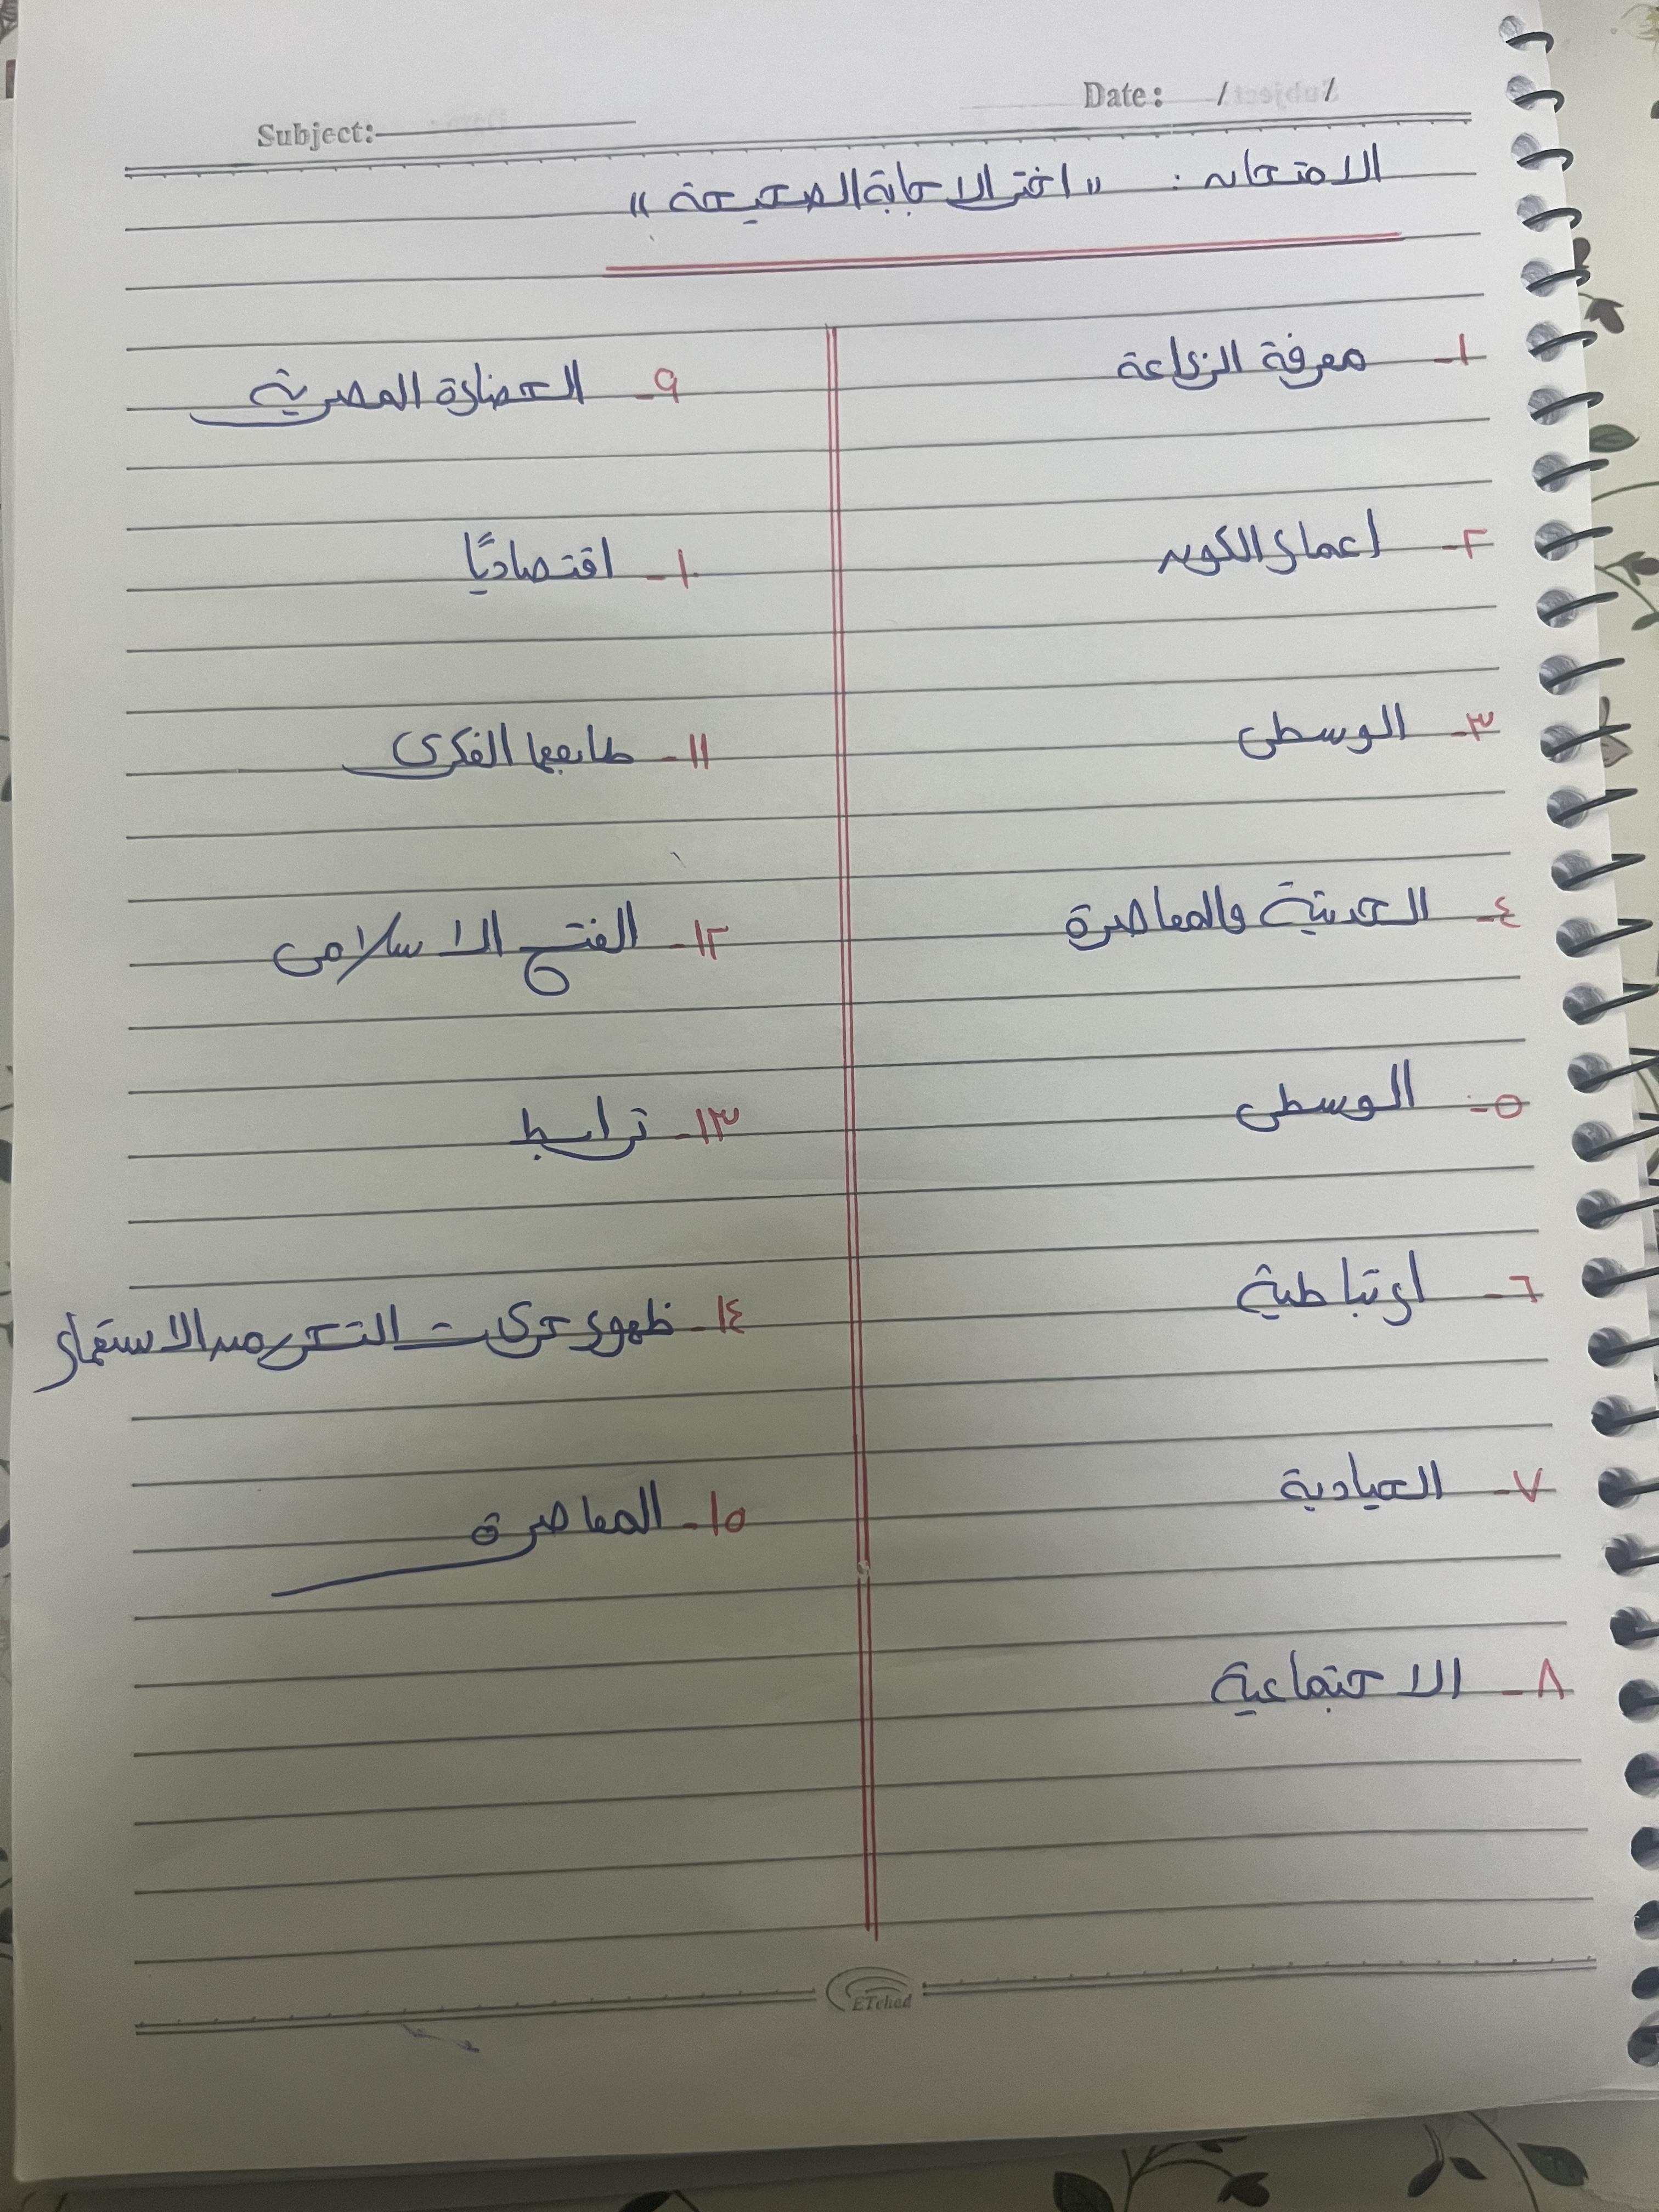 Date: / /
Subject:
الامتحان : "اختر الاجابة الصحيحة"
١- معرفة الزراعة
٢- اعمار الكون
٣- الوسطى
٤- الحديثة والمعاصرة
٥- الوسطى
٦- ارتباطية
٧- الحيادية
٨- الاجتماعية
٩- الحضارة المصرية
١٠- اقتصاديًا
١١- طابعها الفكرى
١٢- الفتح الاسلامى
١٣- ترابط
١٤- ظهور حركات التحرر من الاستعمار
١٥- المعاصرة
ETehad